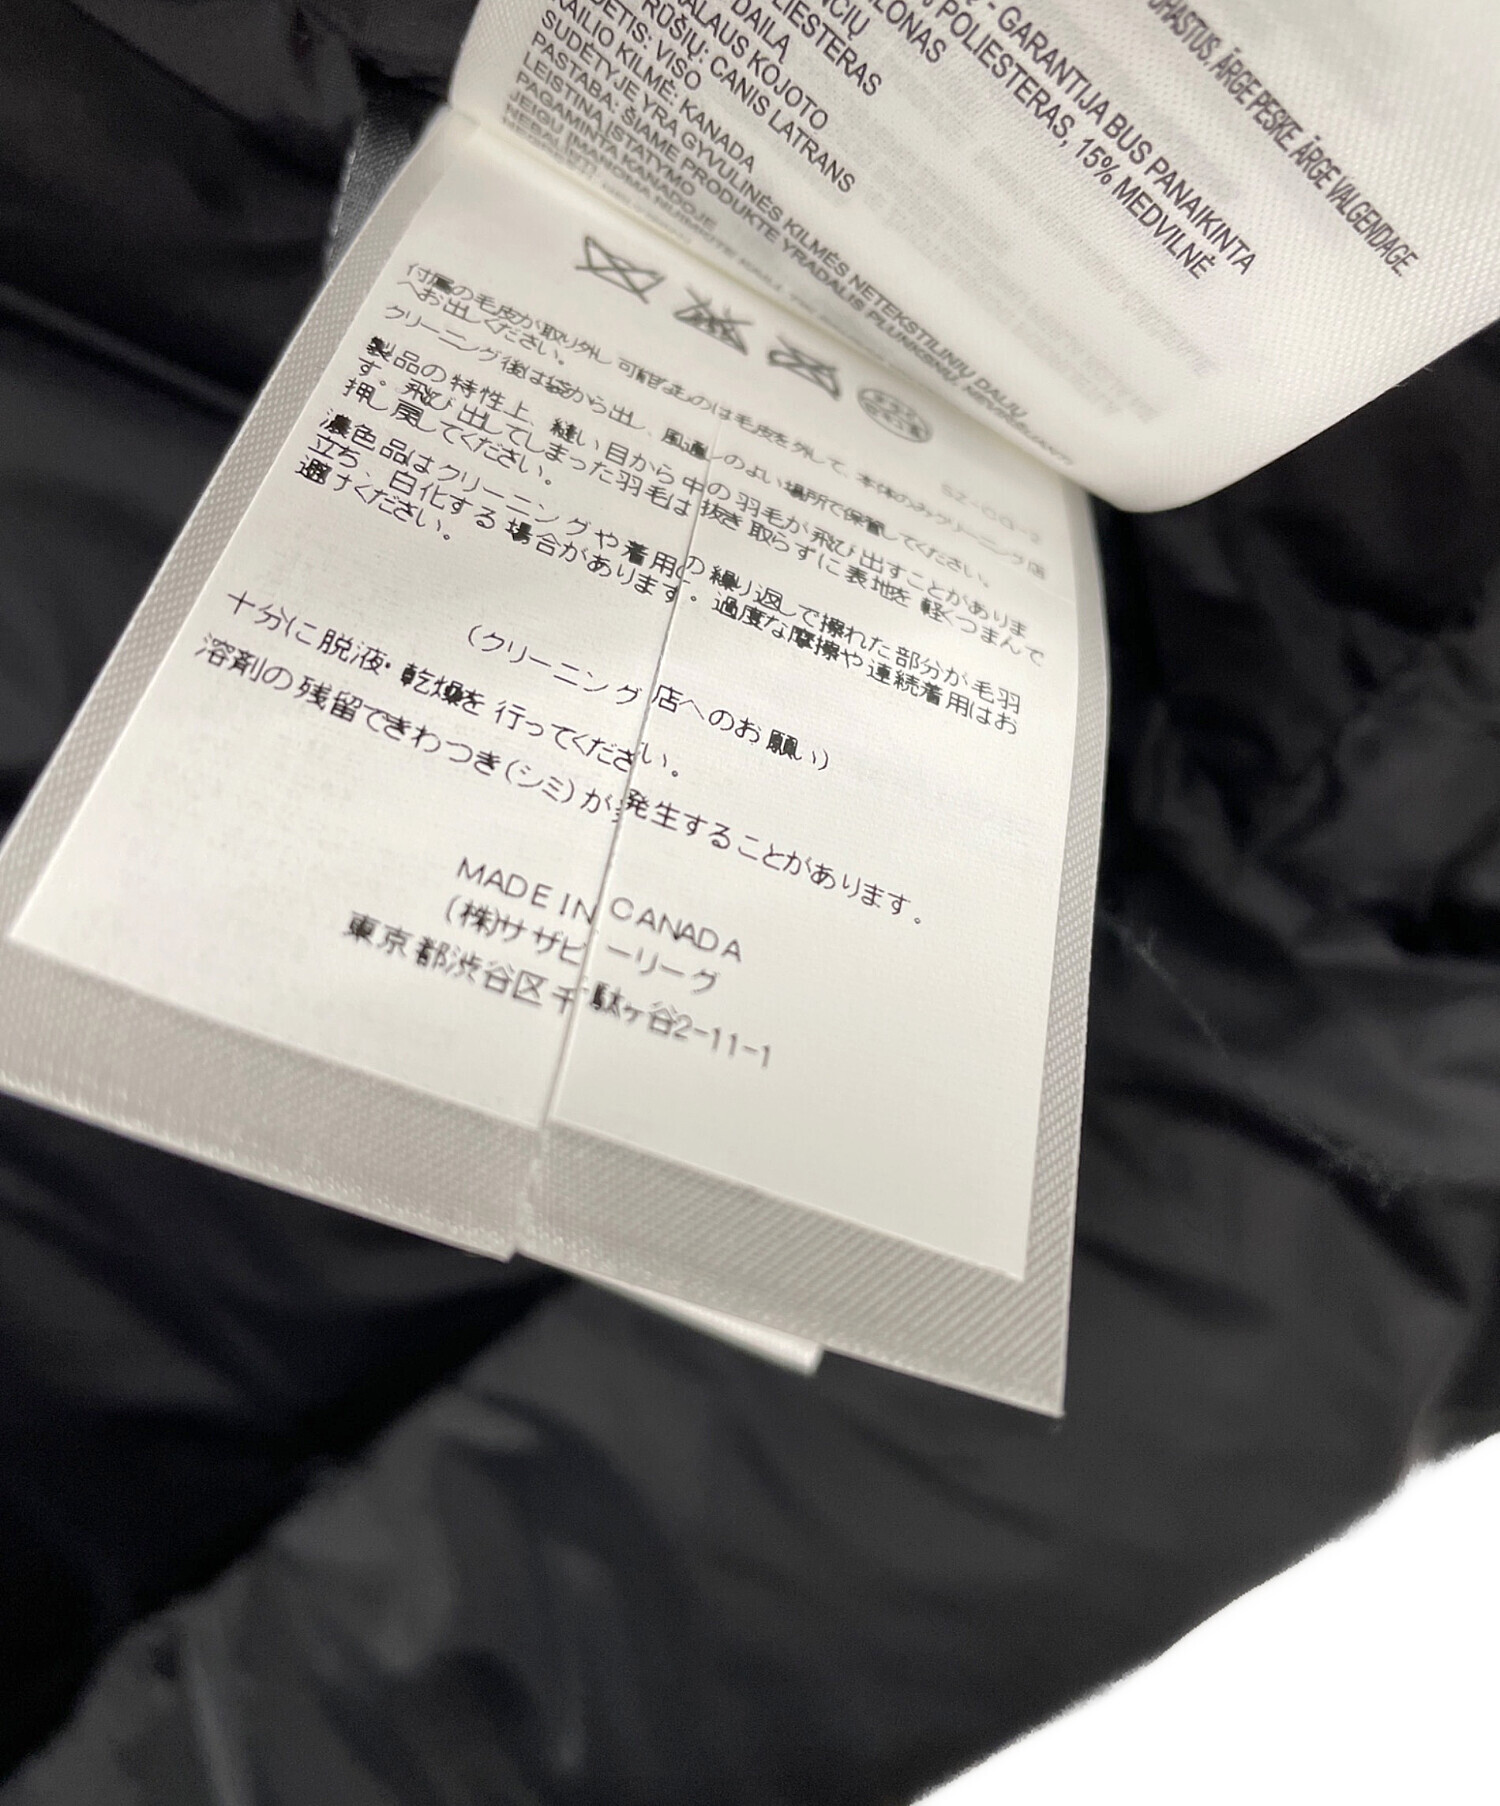 ÕHASTUS. ÄRGE PESKE. ÄRGE VALGENDAGE
- GARANTIJA BUS PANAIKINTA
POLIESTERAS, 15% MEDVILNĖ
DAILĄ
KOJOTO
RŪŠIŲ: CANIS LATRANS
DĖTIS: VISO
KAILIO KILMĖ: KANADA
SUDĖTYJE YRA GYVULINĖS KILMĖS NETEKSTILINIŲ DALIŲ
PASTABA: ŠIAME PRODUKTE YRA
LEISTINA ĮSTATYMO
PAGAMINTA KANADOJE
JEIGU ĮMANOMA
SZ-CG-2
付属の毛皮が取り外し可能なものは毛皮を外して、本体のみクリーニング店
へお出しください。
クリーニング後は袋から出し、風通しのよい場所で保管してください。
製品の特性上、縫い目から中の羽毛が飛び出すことがありま
す。飛び出してしまった羽毛は抜き取らずに表地を軽くつまんで
押し戻してください。
濃色品はクリーニングや着用の繰り返しで擦れた部分が毛羽
立ち、白化する場合があります。過度な摩擦や連続着用はお
避けください。
(クリーニング店へのお願い)
十分に脱液・乾燥を行ってください。
溶剤の残留できわつき(シミ)が発生することがあります。
MADE IN CANADA
(株)サザビーリーグ
東京都渋谷区千駄ヶ谷2-11-1